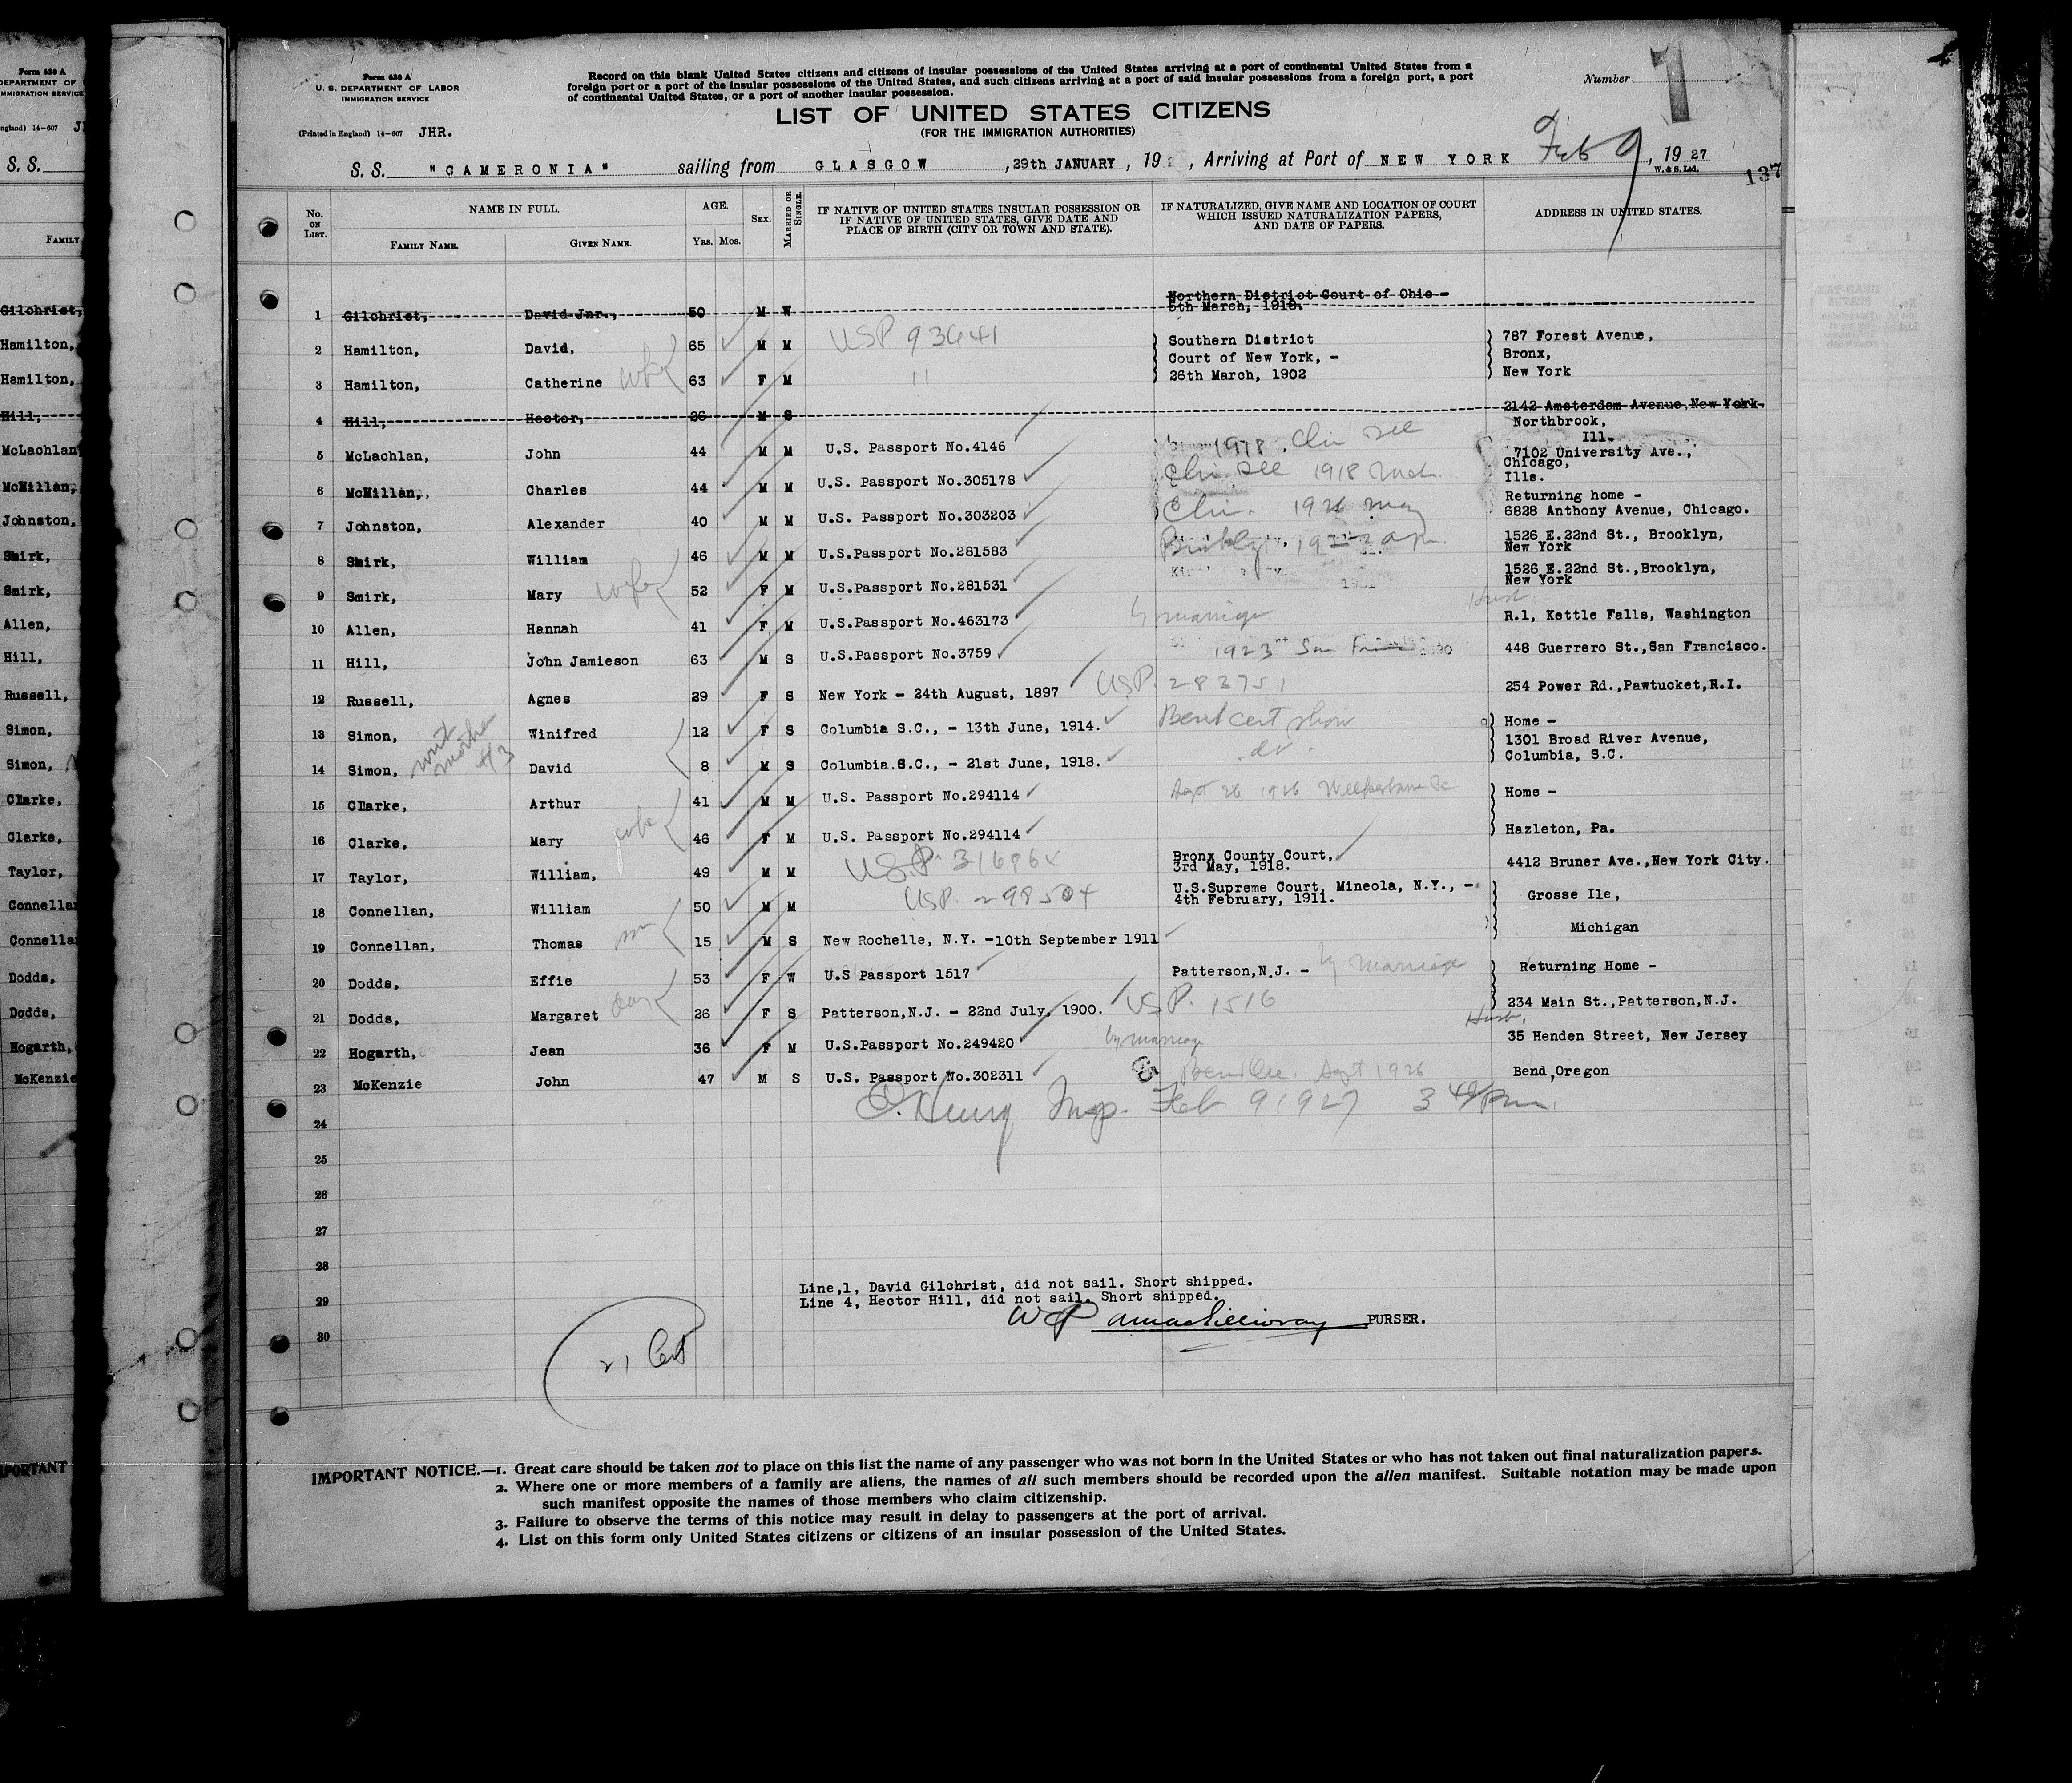 Form 630 A
U. S. DEPARTMENT OF LABOR
IMMIGRATION SERVICE
(Printed in England) 14-607 JHR.
Record on this blank United States citizens and citizens of insular possessions of the United States arriving at a port of continental United States from a
foreign port or a port of the insular possessions of the United States, and such citizens arriving at a port of said insular possessions from a foreign port, a port
of continental United States, or a port of another insular possession.
Number 1
LIST OF UNITED STATES CITIZENS
(FOR THE IMMIGRATION AUTHORITIES)
S. S. "CAMERONIA" sailing from GLASGOW, 29th JANUARY, 19, Arriving at Port of NEW YORK Feb 9, 19 27
W. & S. Ltd.
137
No. ON LIST. NAME IN FULL. FAMILY NAME. GIVEN NAME. AGE. YRS. MOS. SEX. MARRIED OR SINGLE. IF NATIVE OF UNITED STATES INSULAR POSSESSION OR IF NATIVE OF UNITED STATES, GIVE DATE AND PLACE OF BIRTH (CITY OR TOWN AND STATE). IF NATURALIZED, GIVE NAME AND LOCATION OF COURT WHICH ISSUED NATURALIZATION PAPERS, AND DATE OF PAPERS. ADDRESS IN UNITED STATES.
1 Gilchrist, David Jnr., 50 M W Northern District Court of Ohio - 5th March, 1910.
2 Hamilton, David, 65 M M USP 93641 Southern District Court of New York, - 26th March, 1902 787 Forest Avenue, Bronx, New York
3 Hamilton, Catherine wife 63 F M 11
4 Hill, Hector, 26 M S 2142 Amsterdam Avenue, New York.
5 McLachlan, John 44 M M U.S. Passport No.4146 1918 Northbrook, Ill.
6 McMillan, Charles 44 M M U.S. Passport No.305178 1918 7102 University Ave., Chicago, Ills.
7 Johnston, Alexander 40 M M U.S. Passport No.303203 1926 May Returning home - 6828 Anthony Avenue, Chicago.
8 Smirk, William 46 M M U.S.Passport No.281583 1526 E.22nd St., Brooklyn, New York
9 Smirk, Mary wife 52 F M U.S.Passport No.281531 1526 E.22nd St.,Brooklyn, New York
10 Allen, Hannah 41 F M U.S.Passport No.463173 by marriage Husb. R.1, Kettle Falls, Washington
11 Hill, John Jamieson 63 M S U.S.Passport No.3759 1923 San 448 Guerrero St.,San Francisco.
12 Russell, Agnes 29 F S New York - 24th August, 1897 USP. 283751 254 Power Rd.,Pawtucket,R.I.
13 Simon, Winifred 12 F S Columbia S.C., - 13th June, 1914. cert show Home - 1301 Broad River Avenue, Columbia, S.C.
14 Simon, David 8 M S Columbia.S.C., - 21st June, 1918.
15 Clarke, Arthur 41 M M U.S. Passport No.294114 Sept 26 1926 Home -
16 Clarke, Mary wife 46 F M U.S. Passport No.294114 Hazleton, Pa.
17 Taylor, William, 49 M M U.S.P. Bronx County Court, 3rd May, 1918. 4412 Bruner Ave.,New York City.
18 Connellan, William 50 M M USP. 298504 U.S.Supreme Court, Mineola, N.Y., - 4th February, 1911. Grosse Ile,
19 Connellan, Thomas 15 M S New Rochelle, N.Y. -10th September 1911 Michigan
20 Dodds, Effie 53 F W U.S Passport 1517 Patterson,N.J. - by marriage Returning Home -
21 Dodds, Margaret dau 26 F S Patterson,N.J. - 22nd July, 1900. USP. 1516 234 Main St.,Patterson,N.J.
22 Hogarth, Jean 36 F M U.S.Passport No.249420 by marriage Husb. 35 Henden Street, New Jersey
23 McKenzie John 47 M S U.S. Passport No.302311 Sept 1926 Bend,Oregon
24 Feb 9 1927
25
26
27
28
29
30
Line,1, David Gilchrist, did not sail. Short shipped.
Line 4, Hector Hill, did not sail. Short shipped.
PURSER.
21
IMPORTANT NOTICE.—1. Great care should be taken not to place on this list the name of any passenger who was not born in the United States or who has not taken out final naturalization papers.
2. Where one or more members of a family are aliens, the names of all such members should be recorded upon the alien manifest. Suitable notation may be made upon
such manifest opposite the names of those members who claim citizenship.
3. Failure to observe the terms of this notice may result in delay to passengers at the port of arrival.
4. List on this form only United States citizens or citizens of an insular possession of the United States.